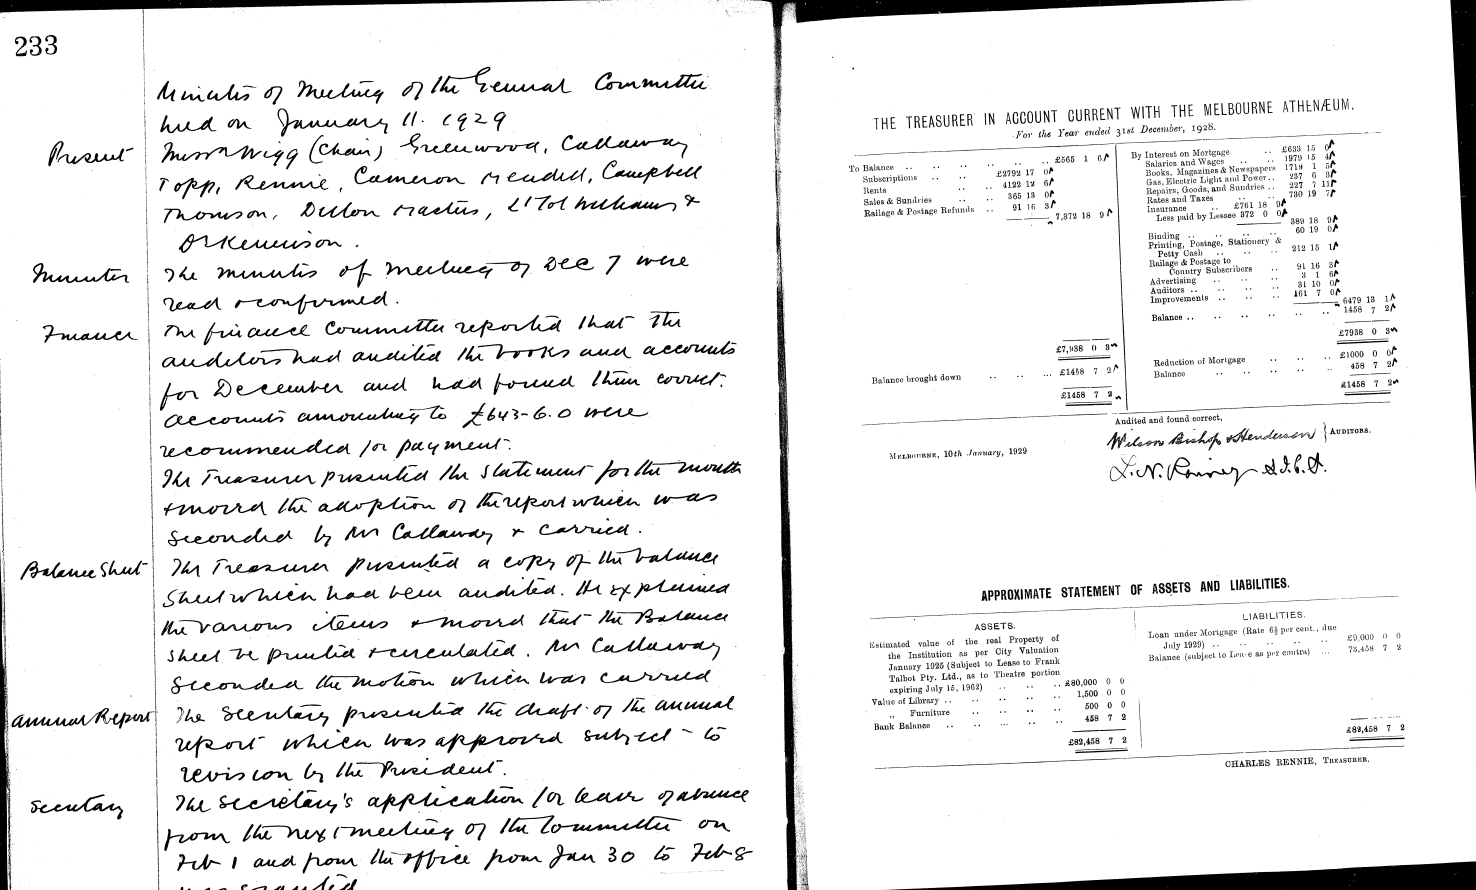 233
Minutes of Meeting of the General Committee
held on January 11. 1929
Present
Messrs Wigg (Chair) Greenwood, Callaway
Topp, Rennie, Cameron Mendell, Campbell
Thomson, Dillon Masters, Lt Col Williams &
Dr Kennison.
Minutes
The minutes of meeting of Dec 7 were
read & confirmed.
Finance
The finance Committee reported that the
auditors had audited the books and accounts
for December and had found them correct.
Accounts amounting to £643-6.0 were
recommended for payment.
The Treasurer presented the statement for the month
& moved the adoption of the report which was
seconded by Mr Callaway & carried.
Balance Sheet
The Treasurer presented a copy of the balance
sheet which had been audited. He explained
the various items & moved that the Balance
sheet be printed & circulated. Mr Callaway
seconded the motion which was carried
Annual Report
The Secretary presented the draft of the annual
report which was approved subject to
revision by the President.
Secretary
The Secretary's application for leave of absence
from the next meeting of the Committee on
Feb 1 and from the office from Jan 30 to Feb 8
was granted
THE TREASURER IN ACCOUNT CURRENT WITH THE MELBOURNE ATHENÆUM.
For the Year ended 31st December, 1928.
To Balance .. .. .. .. .. .. £565 1 6
Subscriptions .. .. £2792 17 0
Rents .. .. 4122 12 6
Sales & Sundries .. .. 365 13 0
Railage & Postage Refunds .. 91 16 3
7,372 18 9
£7,938 0 3
Balance brought down .. .. ... £1458 7 2
£1458 7 2
By Interest on Mortgage .. £633 15 0
Salaries and Wages .. .. 1979 15 4
Books, Magazines & Newspapers 1719 1 5
Gas, Electric Light and Power.. 237 6 3
Repairs, Goods, and Sundries .. 227 7 11
Rates and Taxes .. .. 730 19 7
Insurance .. £761 18 9
Less paid by Lessee 372 0 0
389 18 9
Binding .. .. .. .. 60 19 0
Printing, Postage, Stationery &
Petty Cash .. .. .. 212 15 1
Railage & Postage to
Country Subscribers .. 91 16 3
Advertising .. .. .. 3 1 6
Auditors .. .. .. .. 31 10 0
Improvements .. .. .. 161 7 0
6479 13 1
Balance .. .. .. .. .. .. 1458 7 2
£7938 0 3
Reduction of Mortgage .. .. .. £1000 0 0
Balance .. .. .. .. .. 458 7 2
£1458 7 2
Audited and found correct,
Wilson Bishop & Henderson } AUDITORS.
MELBOURNE, 10th January, 1929
APPROXIMATE STATEMENT OF ASSETS AND LIABILITIES.
ASSETS.
Estimated value of the real Property of
the Institution as per City Valuation
January 1925 (Subject to Lease to Frank
Talbot Pty. Ltd., as to Theatre portion
expiring July 15, 1962) .. .. .. £80,000 0 0
Value of Library .. .. .. .. .. 1,500 0 0
„ Furniture .. .. .. .. 500 0 0
Bank Balance .. .. ... .. .. 458 7 2
£82,458 7 2
LIABILITIES.
Loan under Mortgage (Rate 6½ per cent., due
July 1929) .. .. .. .. .. £9,000 0 0
Balance (subject to Lease as per contra) ... 73,458 7 2
£82,458 7 2
CHARLES RENNIE, TREASURER.